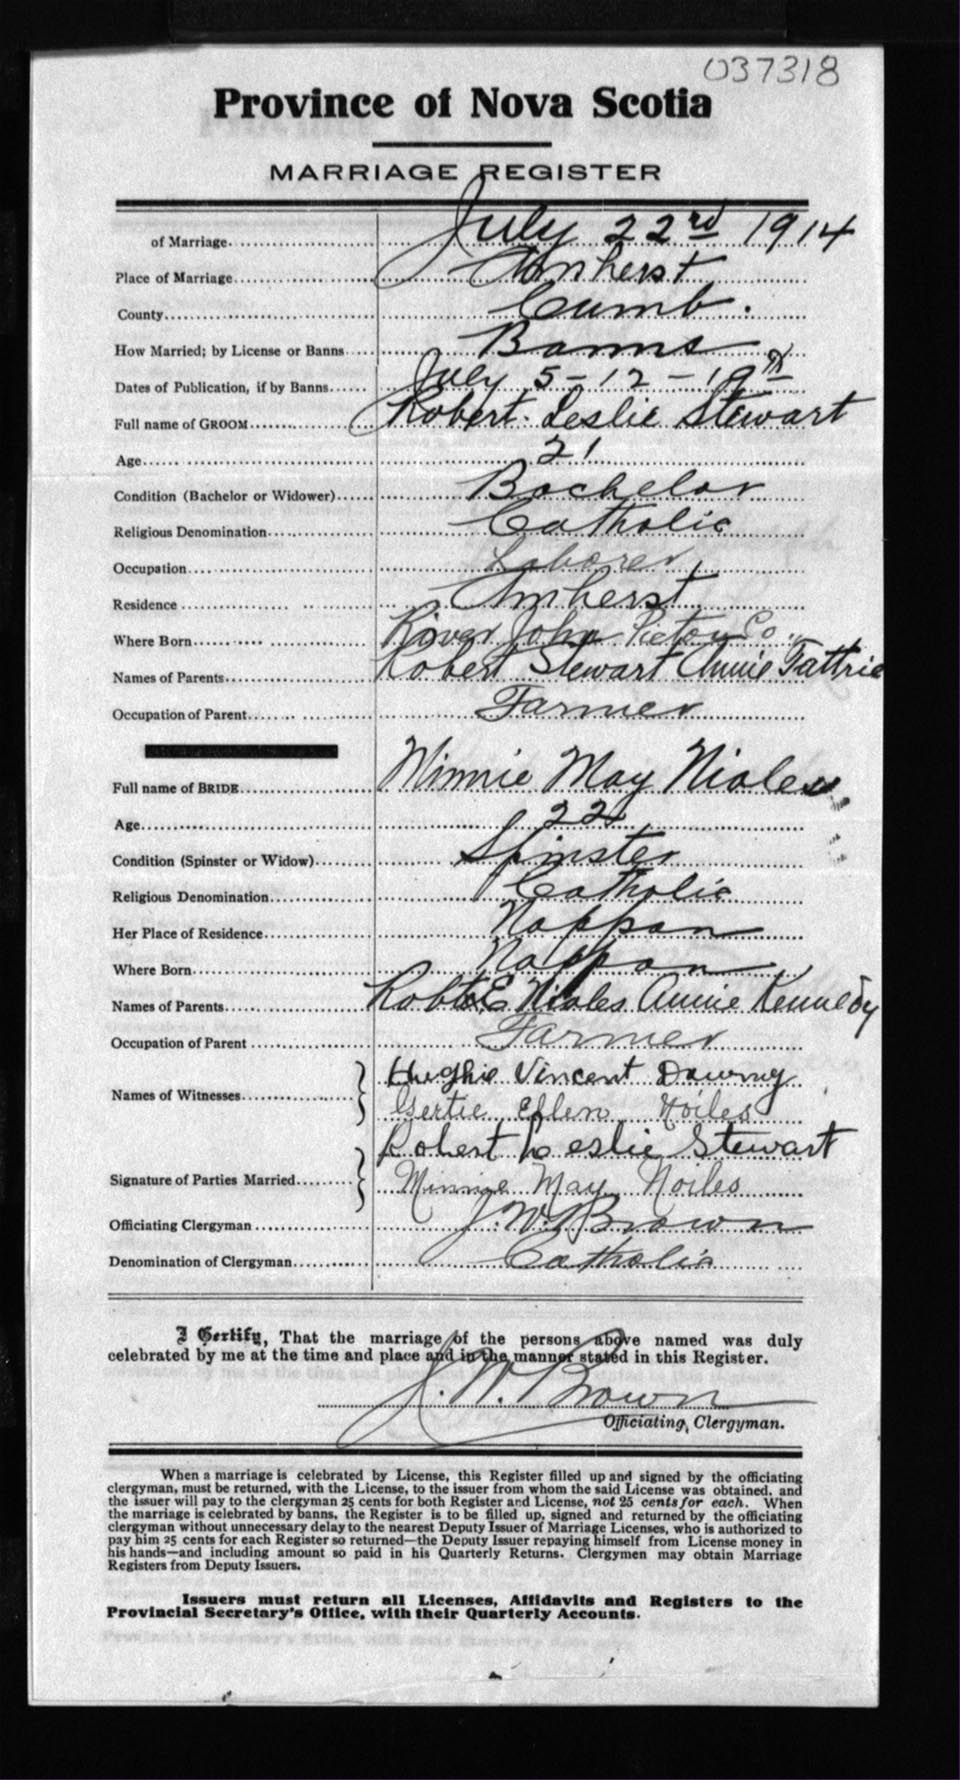 037318
Province of Nova Scotia
MARRIAGE REGISTER
of Marriage July 22nd 1914
Place of Marriage Amherst
County Cumb.
How Married; by License or Banns Banns
Dates of Publication, if by Banns July 5-12-19th
Full name of GROOM Robert Leslie Stewart
Age 21
Condition (Bachelor or Widower) Bachelor
Religious Denomination Catholic
Occupation Laborer
Residence Amherst
Where Born River John Pictou Co.
Names of Parents Robert Stewart Annie Tattrie
Occupation of Parent Farmer
Full name of BRIDE Minnie May Nioles
Age 22
Condition (Spinster or Widow) Spinster
Religious Denomination Catholic
Her Place of Residence Nappan
Where Born Nappan
Names of Parents Robt E Nioles Annie Kennedy
Occupation of Parent Farmer
Names of Witnesses Hughie Vincent Downey
Gertie Ellen Noiles
Signature of Parties Married Robert Leslie Stewart
Minnie May Noiles
Officiating Clergyman J. W. Brown
Denomination of Clergyman Catholic
I Certify, That the marriage of the persons above named was duly
celebrated by me at the time and place and in the manner stated in this Register.
J. W. Brown
Officiating Clergyman.
When a marriage is celebrated by License, this Register filled up and signed by the officiating
clergyman, must be returned, with the License, to the issuer from whom the said License was obtained, and
the issuer will pay to the clergyman 25 cents for both Register and License, not 25 cents for each. When
the marriage is celebrated by banns, the Register is to be filled up, signed and returned by the officiating
clergyman without unnecessary delay to the nearest Deputy Issuer of Marriage Licenses, who is authorized to
pay him 25 cents for each Register so returned—the Deputy Issuer repaying himself from License money in
his hands—and including amount so paid in his Quarterly Returns. Clergymen may obtain Marriage
Registers from Deputy Issuers.
Issuers must return all Licenses, Affidavits and Registers to the
Provincial Secretary's Office, with their Quarterly Accounts.